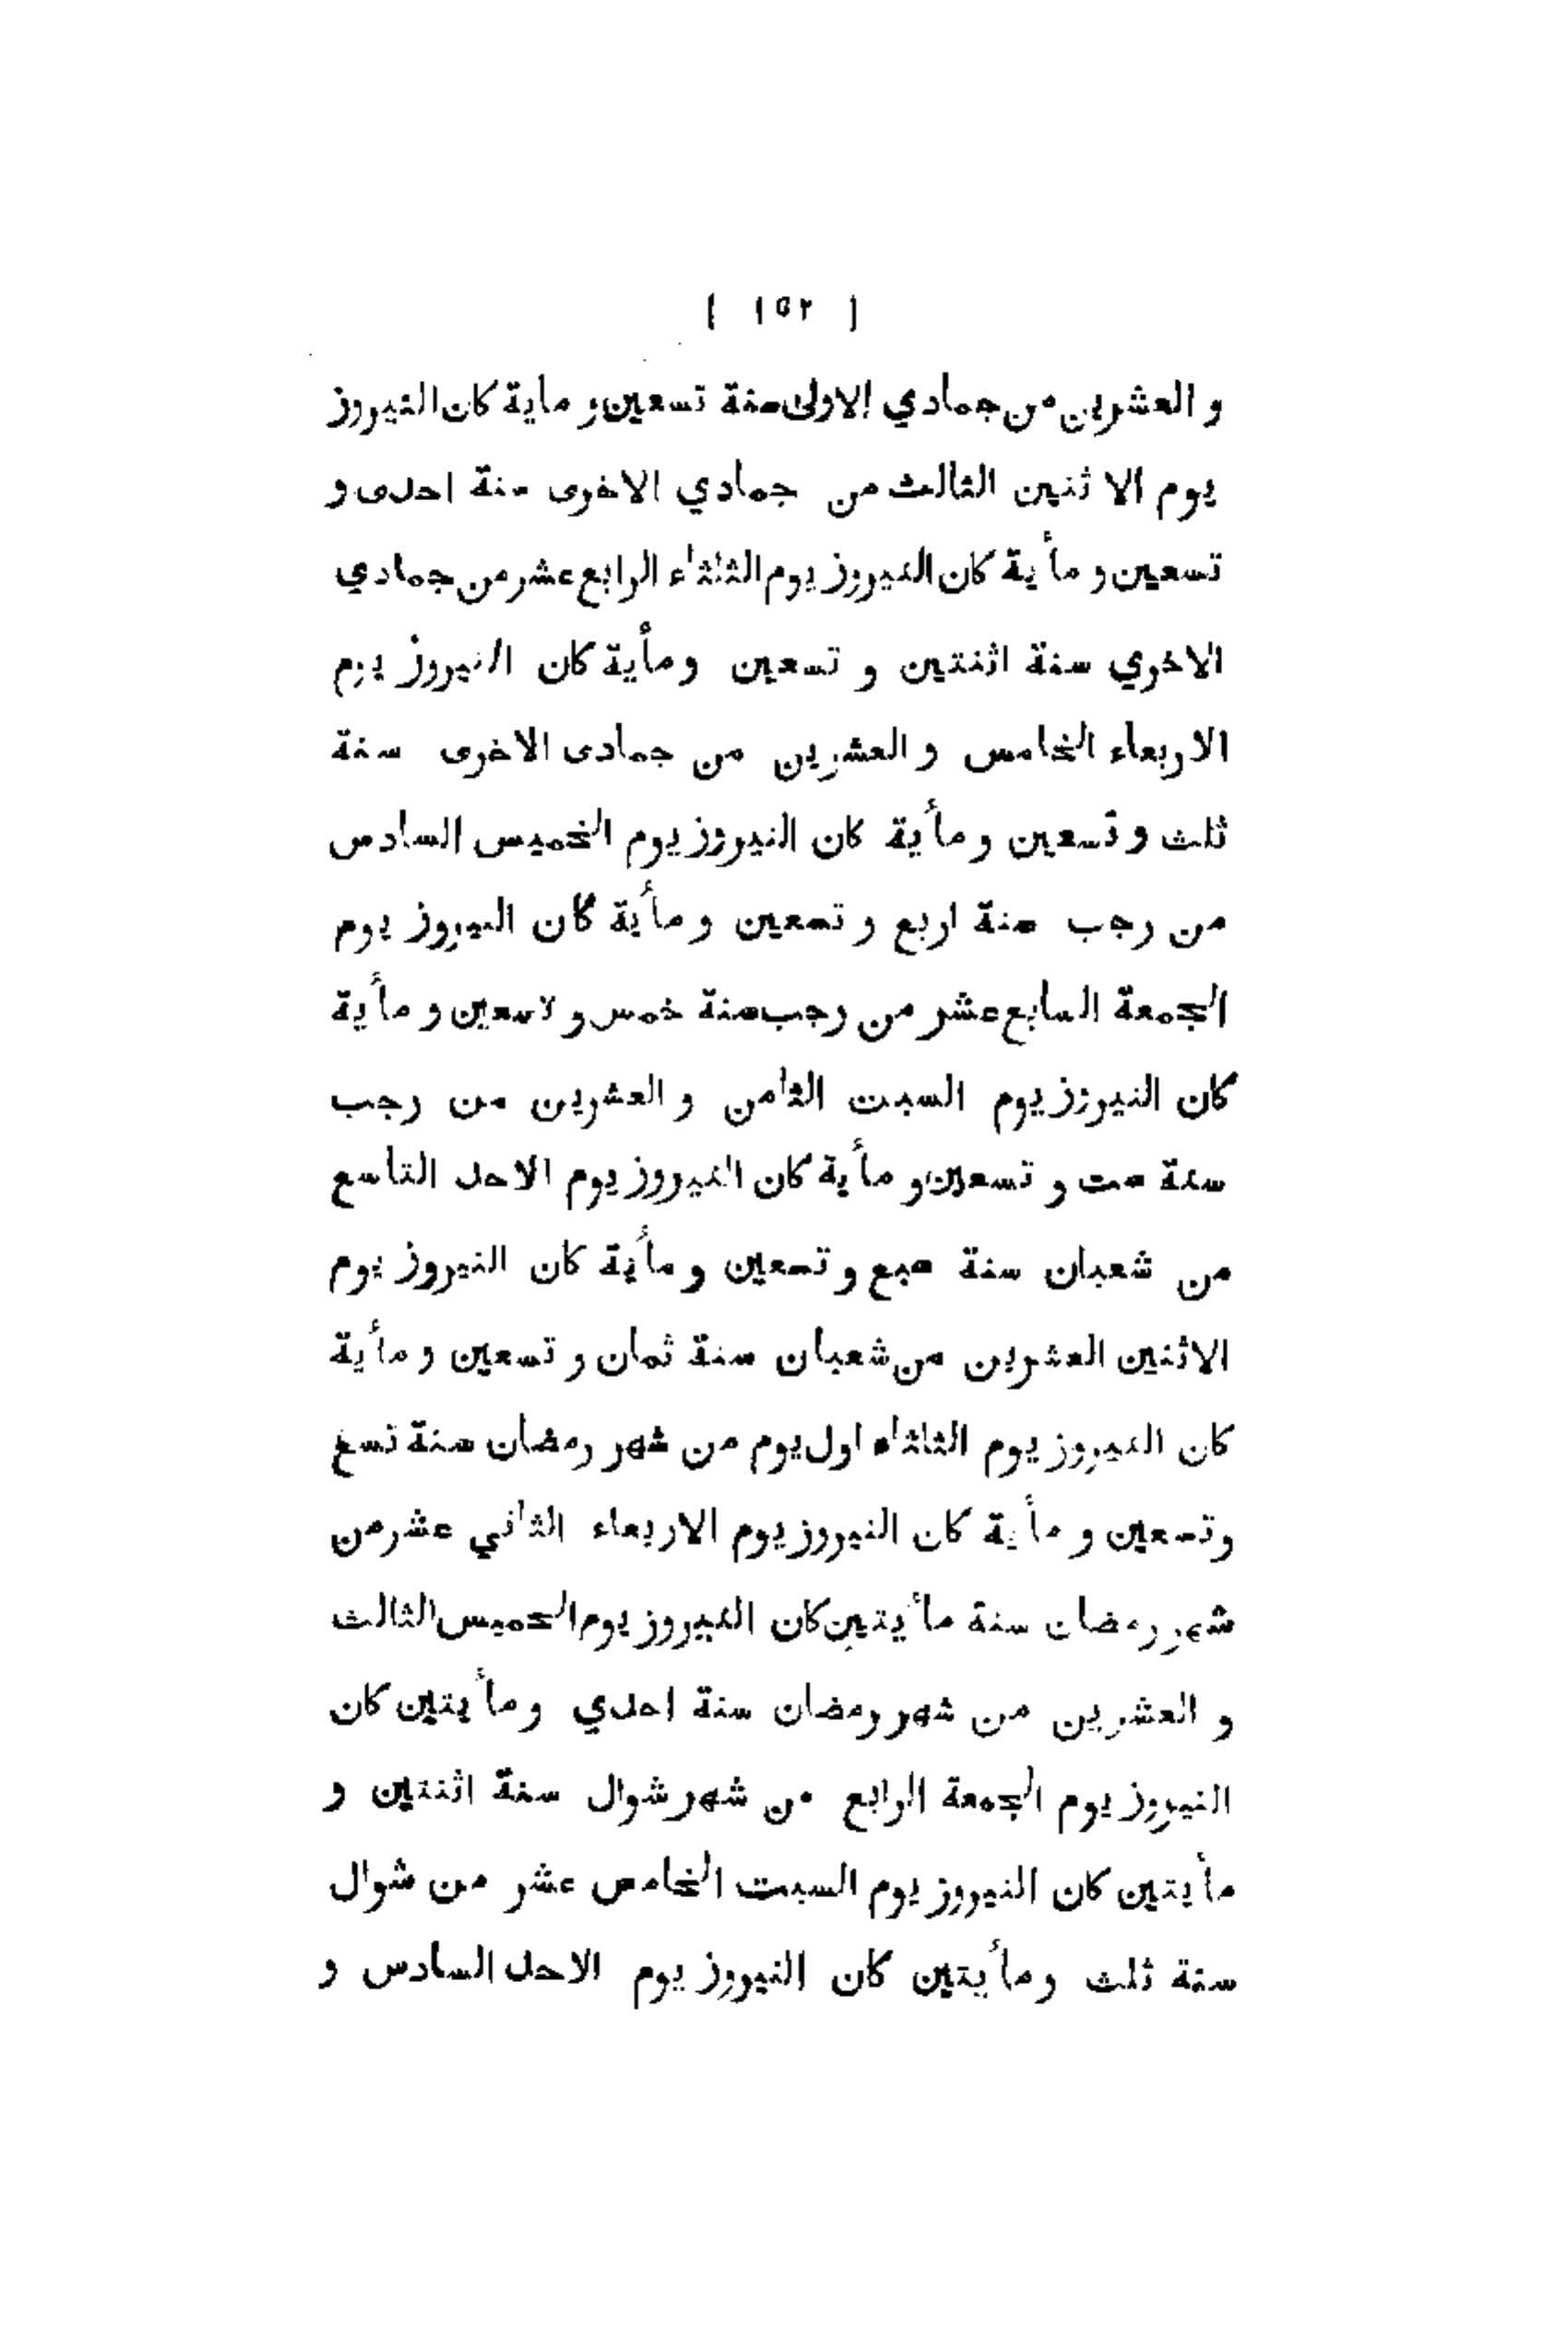 ( ١٥٢ )
و العشرين من جمادي الاولى سنة تسعين و ماية كان النيروز
يوم الا ثنين الثالث من جمادي الاخرى سنة احدى و
تسعين و مأية كان النيروز يوم الثلثاء الرابع عشر من جمادي
الاخري سنة اثنتين و تسعين ومأية كان النيروز يوم
الاربعاء الخامس و العشرين من جمادى الاخرى سنة
ثلث و تسعين و مأية كان النيروز يوم الخميس السادس
من رجب سنة اربع و تسعين و مأية كان النيروز يوم
الجمعة السابع عشر من رجب سنة خمس و تسعين و مأية
كان النيروز يوم السبت الثامن و العشرين من رجب
سنة ست و تسعين و مأية كان النيروز يوم الاحد التاسع
من شعبان سنة سبع و تسعين و مأية كان النيروز يوم
الاثنين العشرين من شعبان سنة ثمان و تسعين و مأية
كان النيروز يوم الثلثاء اول يوم من شهر رمضان سنة تسع
وتسعين و مأية كان النيروز يوم الاربعاء الثاني عشر من
شهر رمضان سنة مأيتين كان النيروز يوم الخميس الثالث
و العشرين من شهر رمضان سنة احدي ومأيتين كان
النيروز يوم الجمعة الرابع من شهر شوال سنة اثنتين و
مأيتين كان النيروز يوم السبت الخامس عشر من شوال
سنة ثلث ومأيتين كان النيروز يوم الاحد السادس و